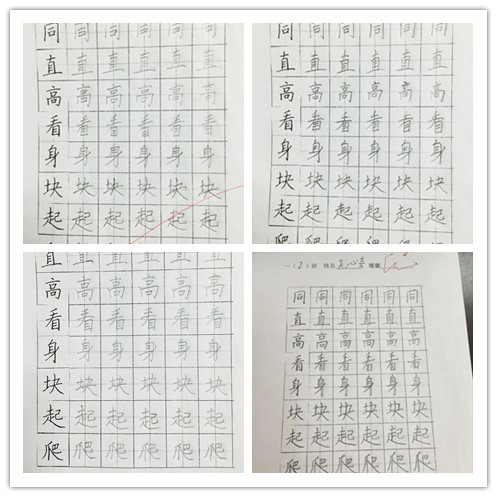 同 同 同 同 同 同
直 直 直 直 直 直
高 高 高 高 高 高
看 看 看 看 看 看
身 身 身 身 身 身
块 块 块 块 块 块
起 起 起 起 起 起
同 同 同 同 同 同
直 直 直 直 直 直
高 高 高 高 高 高
看 看 看 看 看 看
身 身 身 身 身 身
块 块 块 块 块 块
起 起 起 起 起 起
爬 爬 爬 爬 爬 爬
直 直 直 直 直 直
高 高 高 高 高 高
看 看 看 看 看 看
身 身 身 身 身 身
块 块 块 块 块 块
起 起 起 起 起 起
爬 爬 爬 爬 爬 爬
一(2)班 姓名 等第
同 同 同 同 同 同
直 直 直 直 直 直
高 高 高 高 高 高
看 看 看 看 看 看
身 身 身 身 身 身
块 块 块 块 块 块
起 起 起 起 起 起
爬 爬 爬 爬 爬 爬